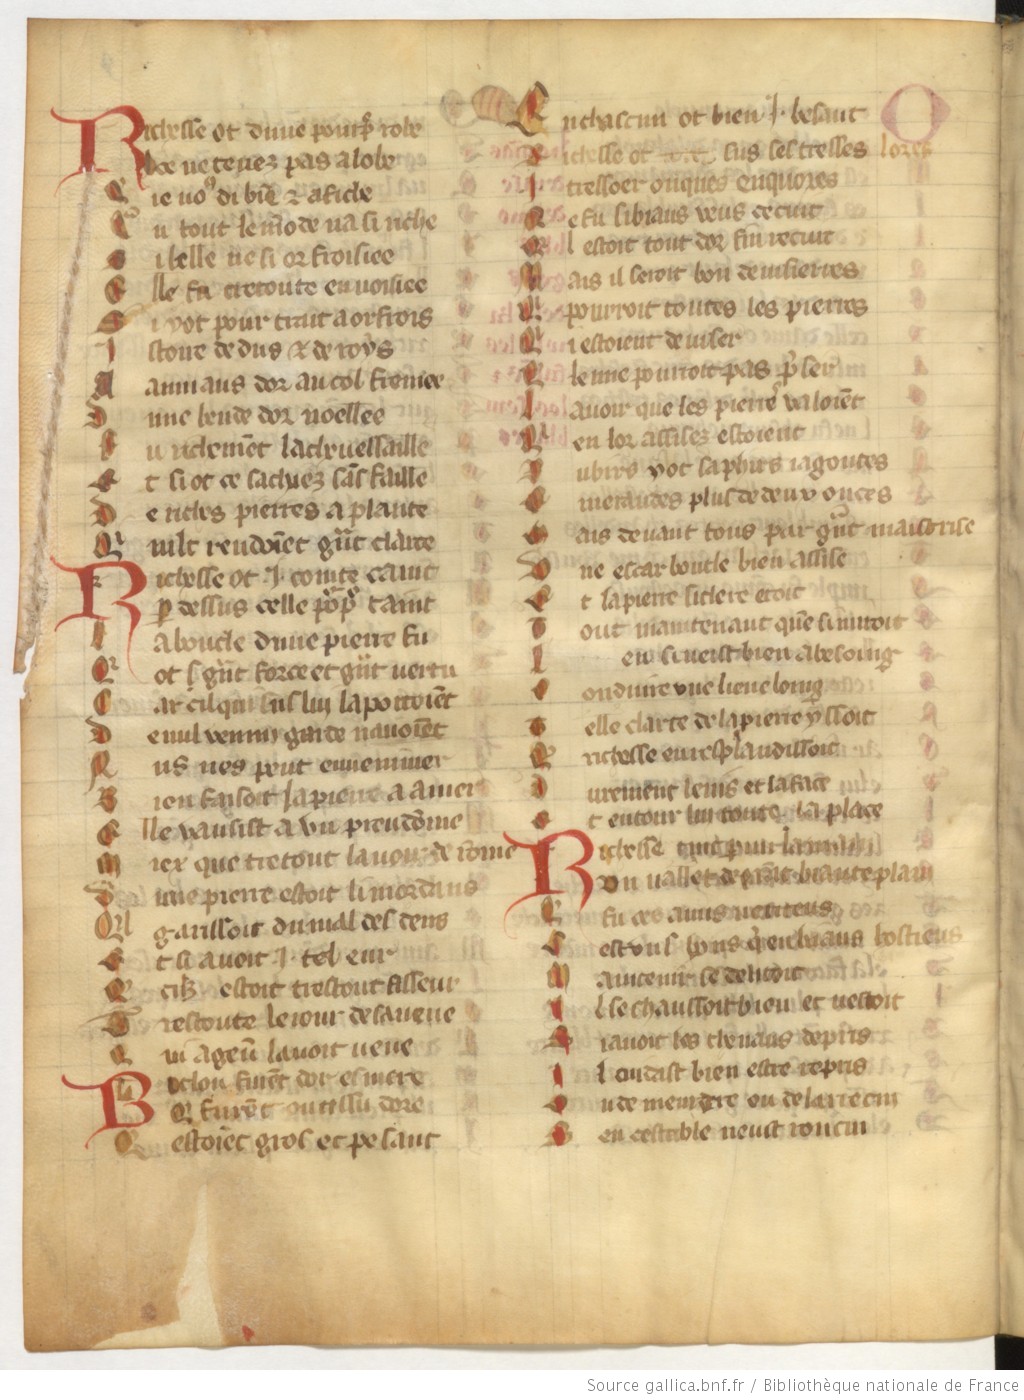 Richesse ot dune pourpr̃ robe
Nce ne tenez pas a lobe
Q ie uoꝰ di biē ⁊ afiche
Q u tout le mōde na si riche
s i belle ne si or froisiee
E lle fu tretoute enuoisiee
S i yot pour trait a orfrois
I stoire de dus ⁊ de roys
A anniaus dor au col fremee
D une bende dor noellee
f u richemēt la cheuessaille
e t si ot ce sachiez sās faille
D e riches pierres a plante
Q mlt rendoiēt gr̃nt clarte
Richesse ot .I. . ceint
p̱ dessus celle po᷑p᷑ ceint
l a boucle dune pierre fu
Q ot si gr̃nt force et gr̃nt uertu
C ar cil qui sus lui la portoiēt
D e nul venim garde nauoiēt
N us nes peut enuenimer
B ien faisoit la pierre a amer
E lle vausist a vn preudōme
m iex que tretout lauoir de rōme
D une pierre estoit li mordans
Q garissoit du mal des dens
e t si auoit .I. tel eur
Q cilz estoit trestout asseur
T restoute le iour de sa ueue
Q ui a geū lauoit ueue
Boclou furēt dor esmere
Q furēt ou tissu dore
Q estoiēt gros et pesant
E n chascun ot bien .I. besant
R ichesse ot sus ses tresses
I tressoer onques enquores
N e fu si biaus veus ce cuit
Q l estoit tout dor fin recuit
M ais il seroit bon deuisierres
Q pourroit toutes les pierres
Q i estoient deuiser
Q le nne pourroit pas pr̃ser
l auoir que les pierrẽ valoiēt
Q en lor assisez estoient
R ubins yot saphirs iagonces
e meraudes plus de deux onces
m ais deuant tous par gr̃nt maistrise
V ne escarboucle bien assise
E t la pierre si clere estoit
T out maintenant quē anuitoit
l en si ueist bien a besoing
c onduire vne lieue loing
T elle clarte de la pierre yssoit
Q richesse en resplandissoit
D urement le uis et la face
e t entour lui toute la place
Richesse tint par la main
Vn vallet de gr̃nt biaute plain
Q fu ces amis ueriteus
C est vns hons q̃ en biaus hostieus
m aintenir se delitoit
I l se chaussoit bien et uestoit
S i auoit les cheuaus de pris
I l cuidast bien estre repris
O u de meurdre ou de larrecin
S en cestable neust roncin